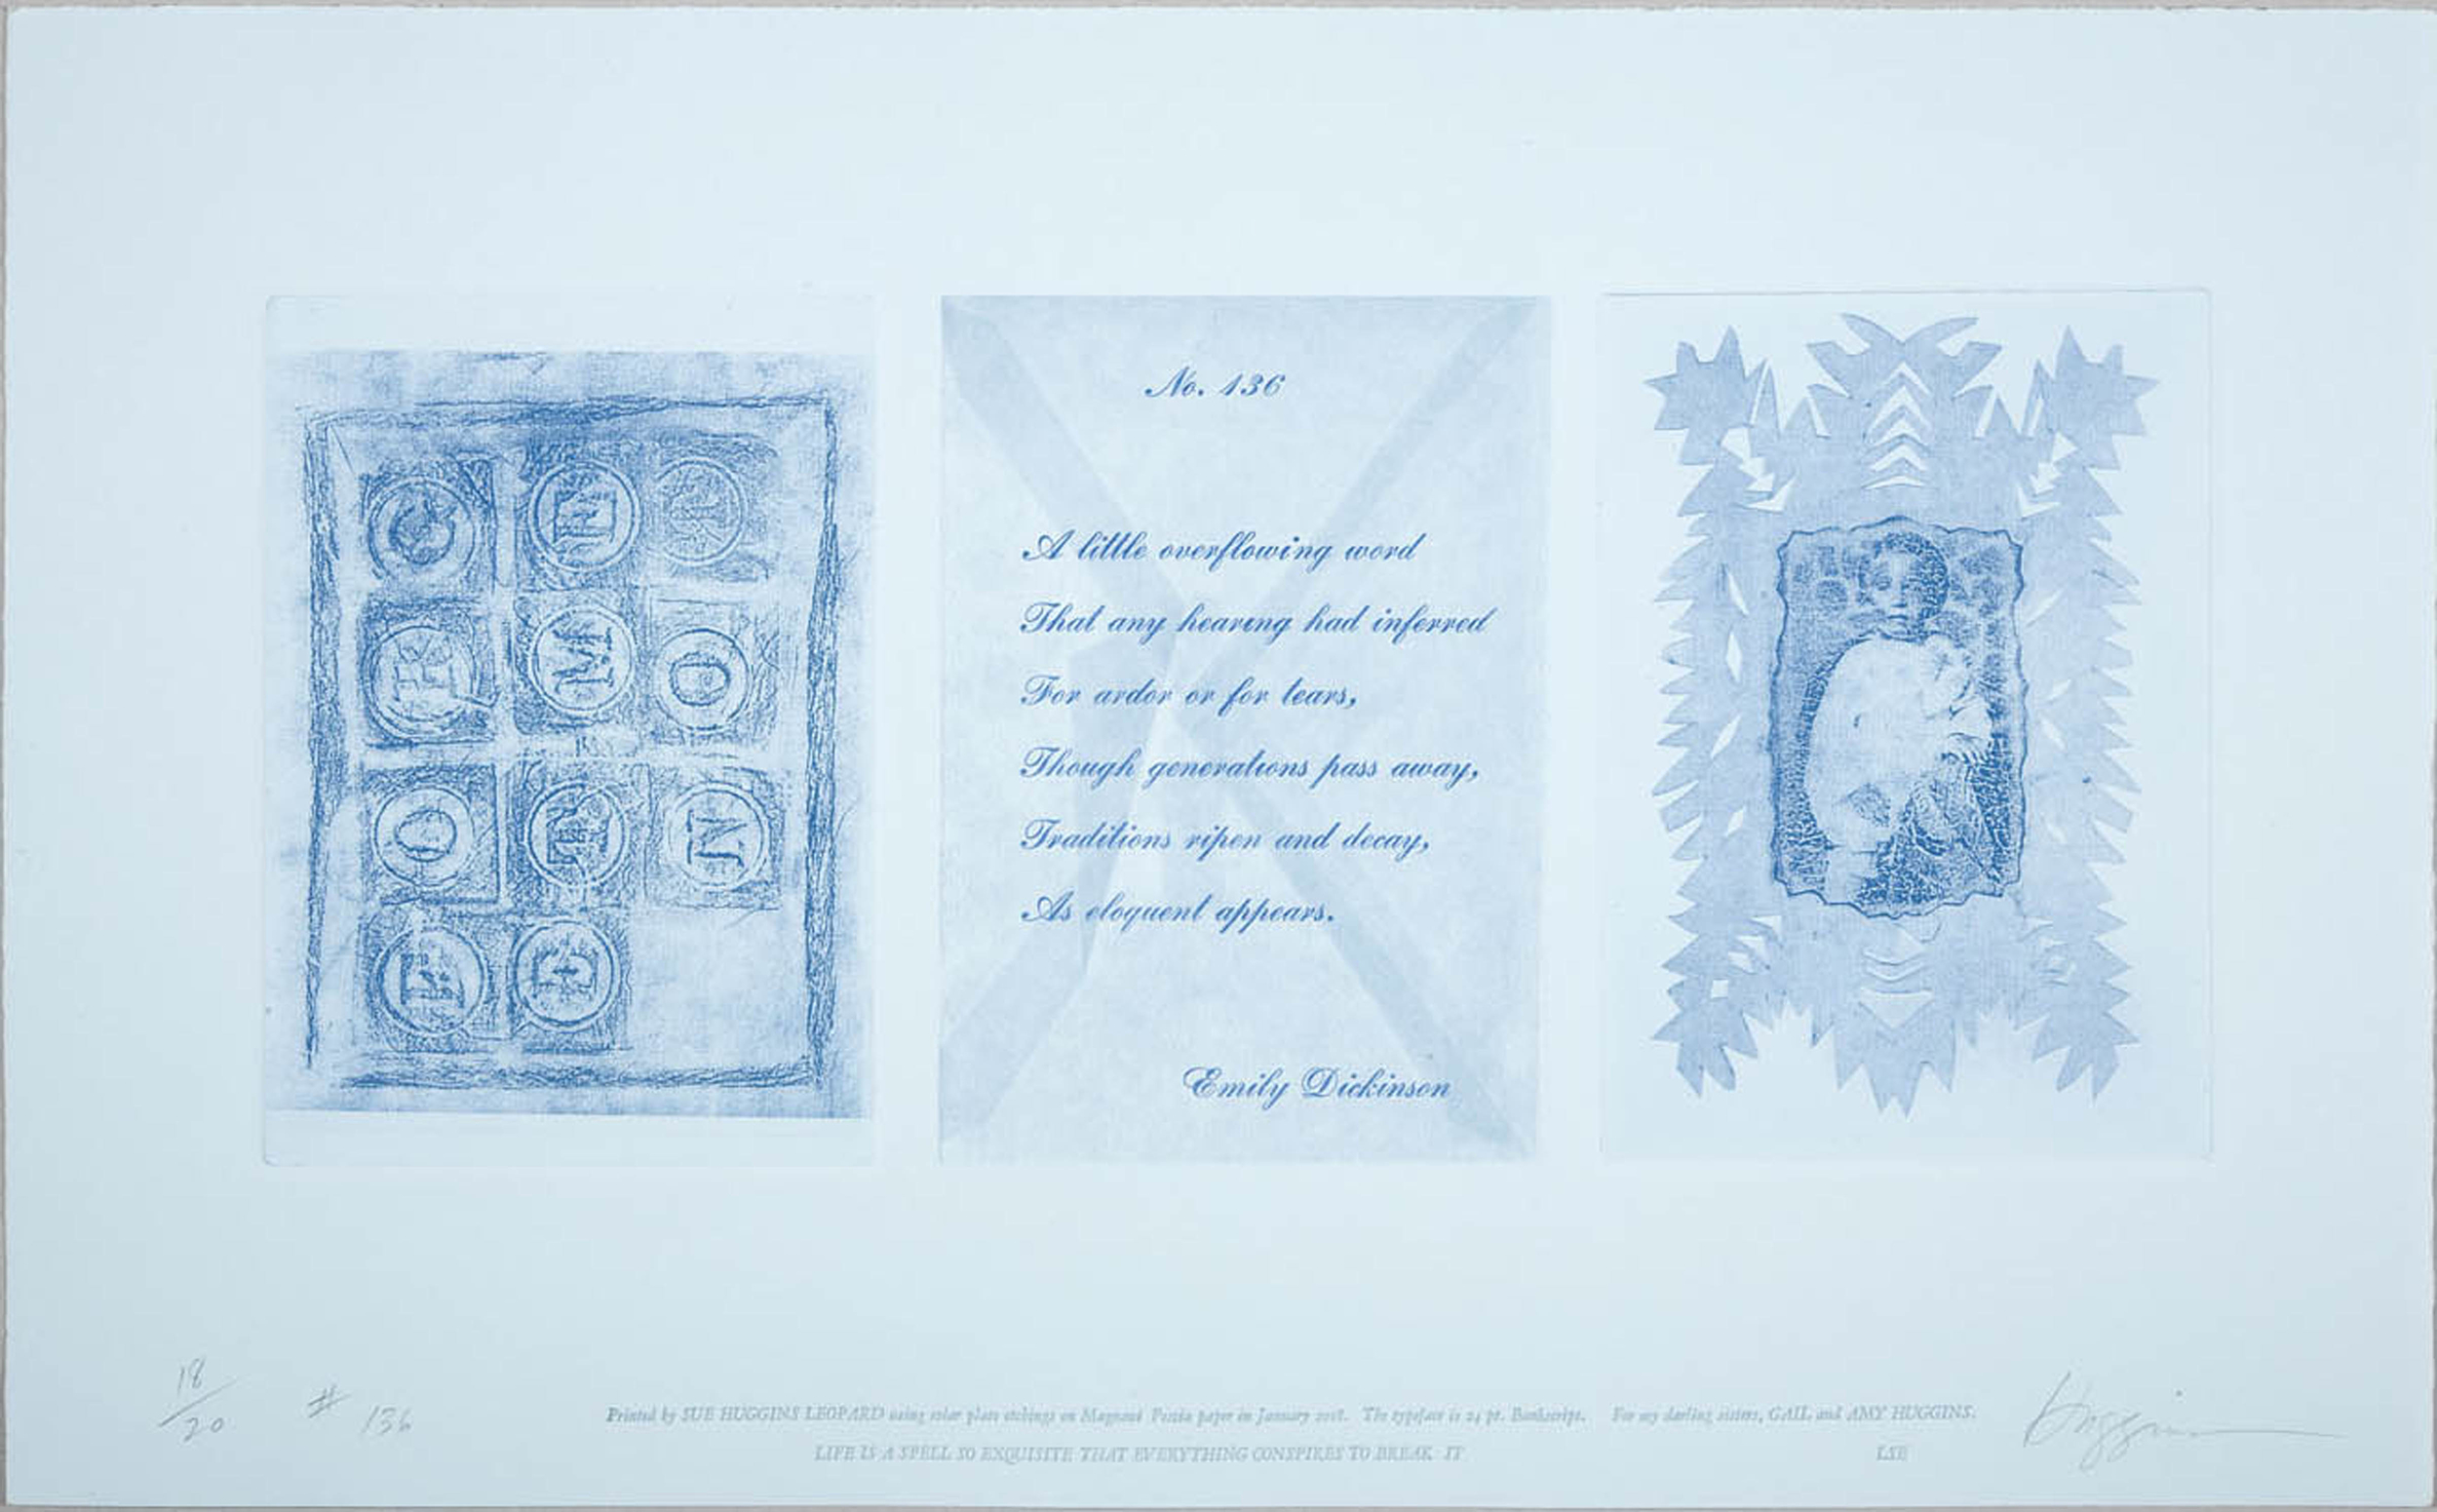 E
M O
O N
E
No. 136
A little overflowing word
That any hearing had inferred
For ardor or for tears,
Though generations pass away,
Traditions ripen and decay,
As eloquent appears.
Emily Dickinson
18/20 # 136
Printed by SUE HUGGINS LEOPARD using solar plate etchings on Magnani Pescia paper in January The typeface is 24 pt. Bankscript. For my darling sisters, GAIL and AMY HUGGINS.
LIFE IS A SPELL SO EXQUISITE THAT EVERYTHING CONSPIRES TO BREAK IT
Huggins